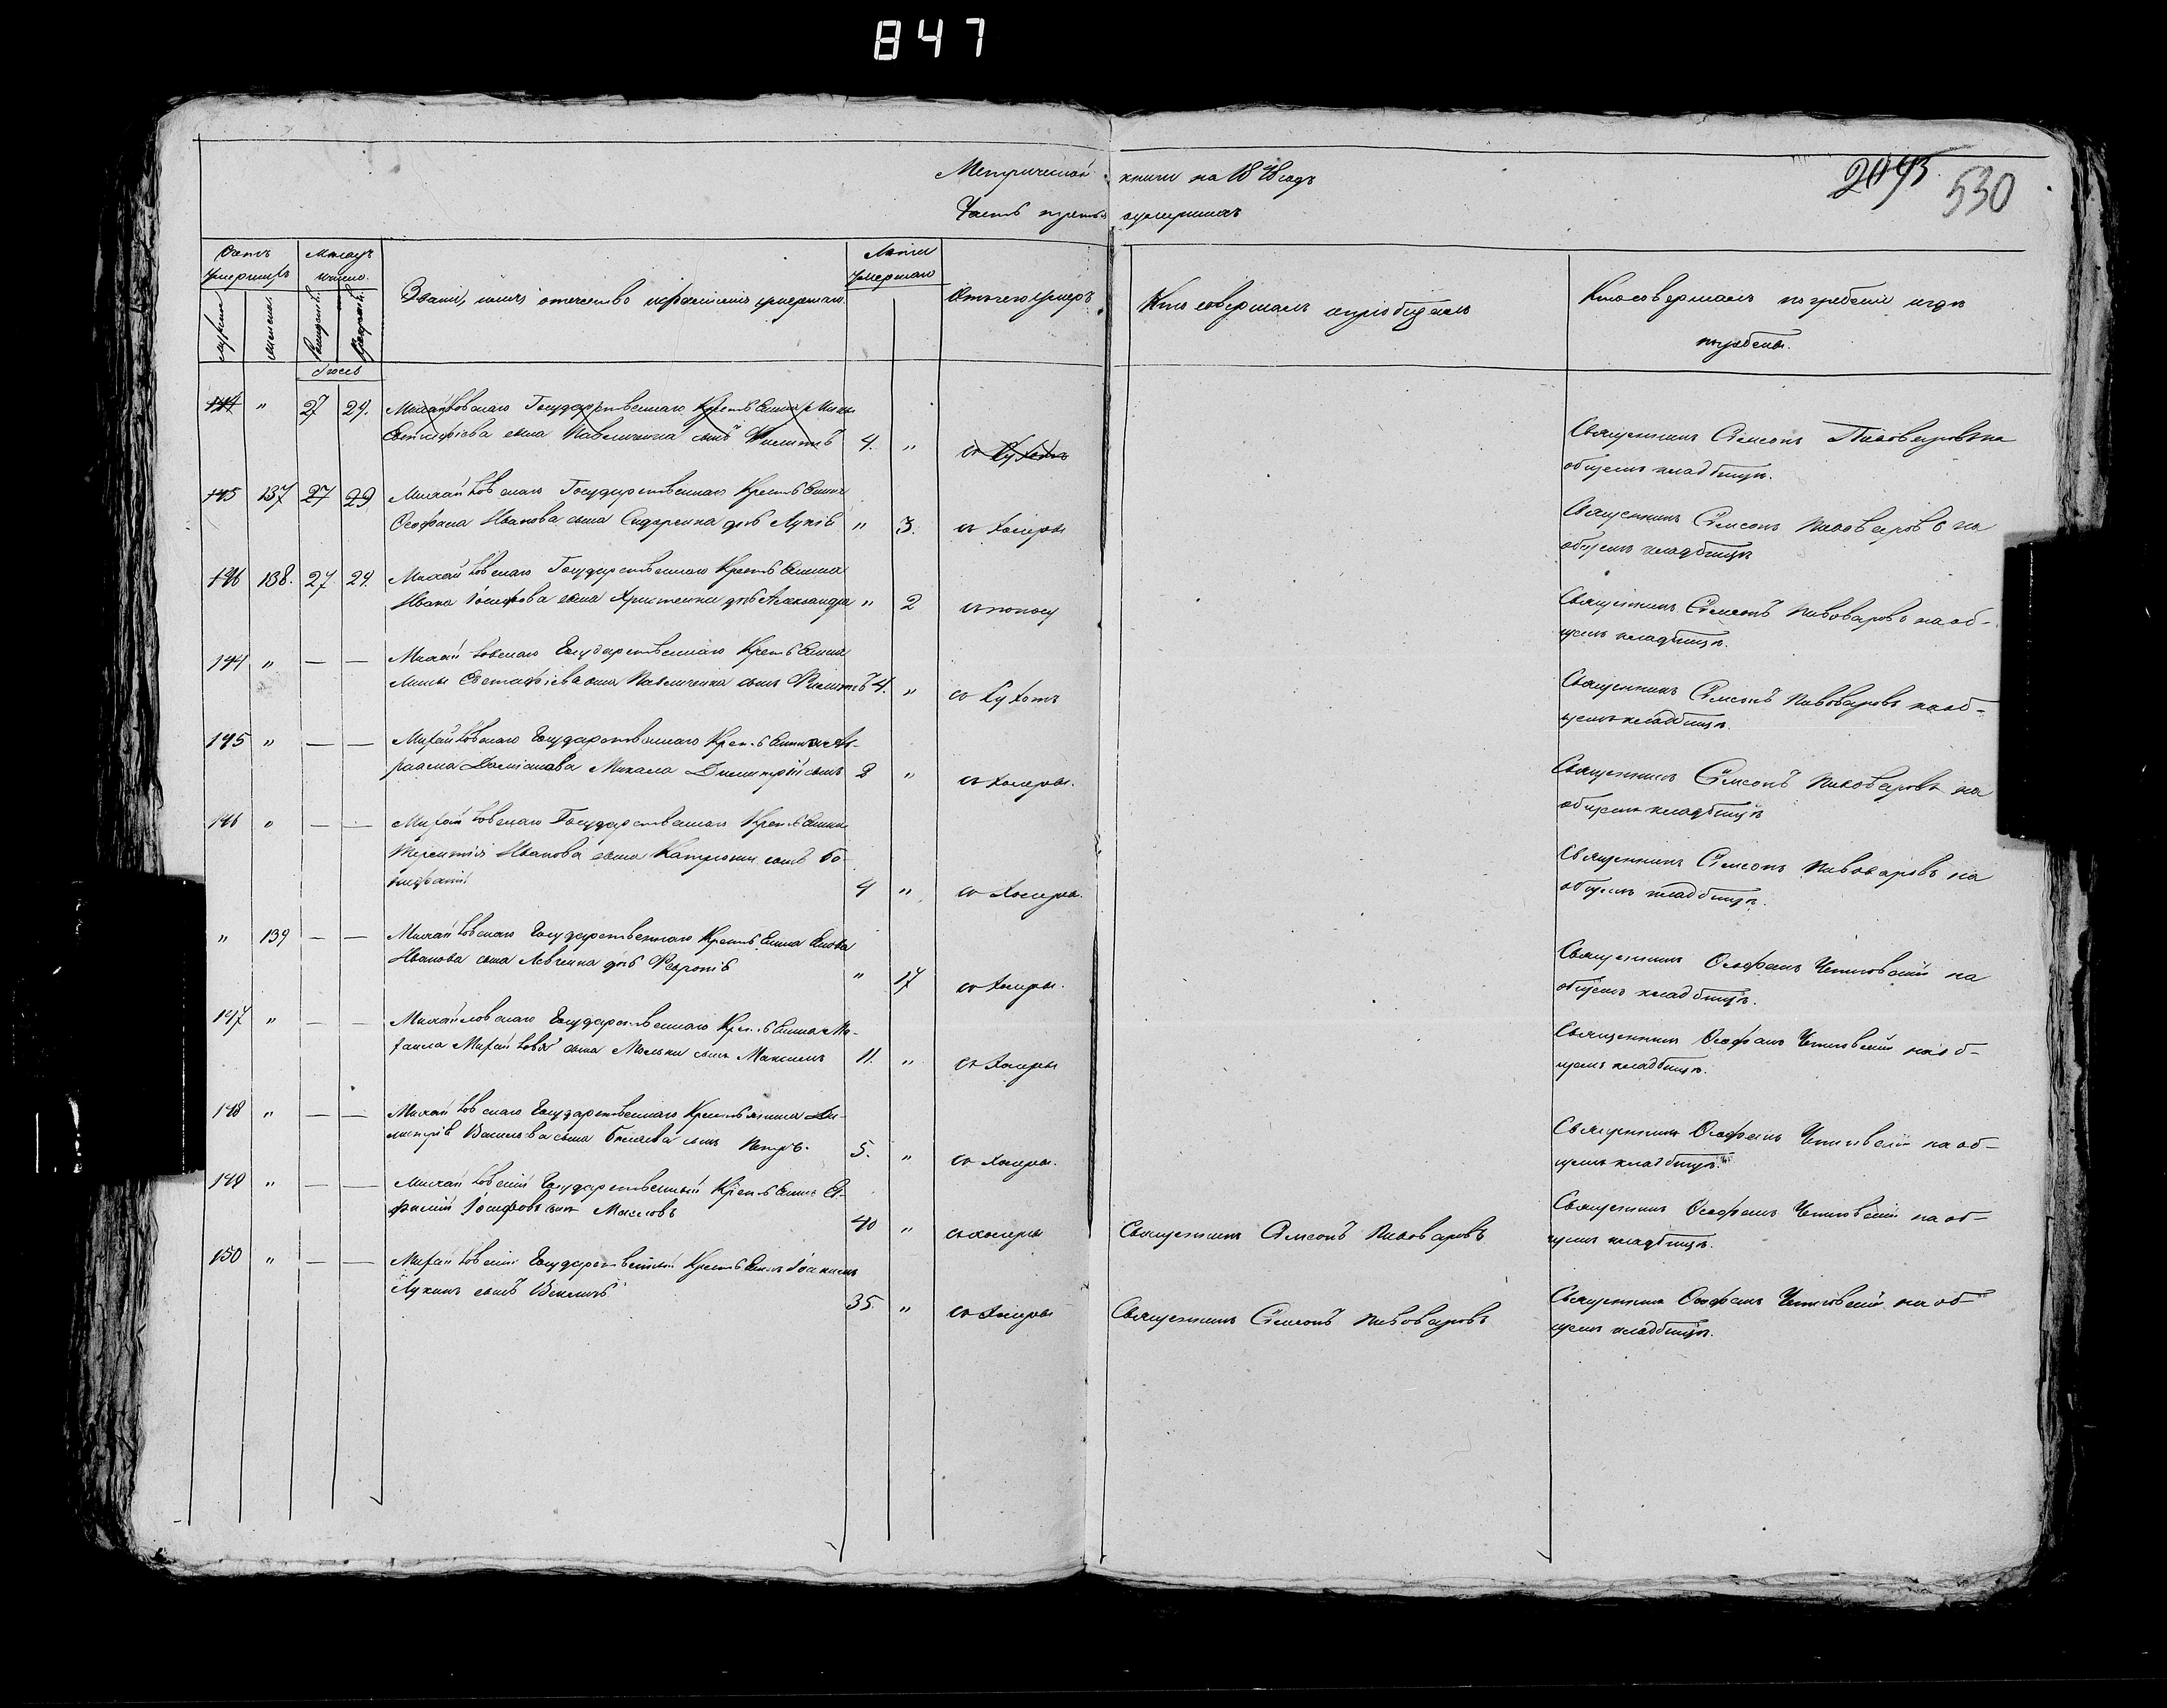 847
Метрической книги на 1848 годъ
Часть третья о умершихъ
530
Счетъ умершихъ
Месяцъ и число
Званіе, имя, отечество и фамилія умершаго
Лѣта умершаго
Отъ чего умеръ
Кто исповедывалъ и пріобщалъ
Кто совершалъ погребеніе и гдѣ
погребены.
мужеска
женска
144 " 27 29. Михайловскаго Государственнаго Крестьянина Мины
Евстафіева сына Павличенка сынъ Филиппъ 4. " отъ сухотъ
Священникъ Симеонъ Пивоваровъ на
общемъ кладбищѣ.
145 137 27 29 Михайловскаго Государственнаго Крестьянина
Феофана Иванова сына Сидоренка дочь " 3. отъ холеры
Священникъ Симеонъ Пивоваровъ на
общемъ кладбищѣ
146 138. 27 29. Михайловскаго Государственнаго Крестьянина
Ивана Іосифова сына дочь Александра " 2 отъ поносу
Священникъ Симеонъ Пивоваровъ на об-
щемъ кладбищѣ.
144 " — — Михайловскаго Государственнаго Крестьянина
Мины Евстафіева сына Павличенка сынъ Филиппъ 4. " отъ сухотъ
Священникъ Симеонъ Пивоваровъ на об-
щемъ кладбищѣ.
145 " — — Михайловскаго Государственнаго Крестьянина Ав-
раама Даміанова Димитрій сынъ 2 " отъ холеры.
Священникъ Симеонъ Пивоваровъ на
общемъ кладбищѣ
146 " — — Михайловскаго Государственнаго Крестьянина
Терентія Иванова сына сынъ Бо-
нифатій 4 " отъ холеры.
Священникъ Симеонъ Пивоваровъ на
общемъ кладбищѣ.
" 139 — — Михайловскаго Государственнаго Крестьянина
Иванова сына Левченка дочь Февронія " 17 отъ холеры.
Священникъ Феофанъ на
общемъ кладбищѣ.
147 " — — Михайловскаго Государственнаго Крестьянина Ми-
хаила Михайлова сына сынъ Максимъ 11. " отъ холеры
Священникъ Феофанъ на об-
щемъ кладбищѣ.
148 " — — Михайловскаго Государственнаго Крестьянина Ди-
митрія Васильева сына Беляева сынъ Петръ. 5. " отъ холеры.
Священникъ Феофанъ на об-
щемъ кладбищѣ.
149 " — — Михайловскій Государственный Крестьянинъ Еф-
фимій Іосифовъ сынъ Масловъ 40 " отъ холеры
Священникъ Симеонъ Пивоваровъ
Священникъ Феофанъ на об-
щемъ кладбищѣ.
150 " — — Михайловскій Государственный Крестьянинъ Іоакимъ
Лукинъ сынъ 35. " отъ холеры
Священникъ Симеонъ Пивоваровъ
Священникъ Феофанъ на об-
щемъ кладбищѣ.